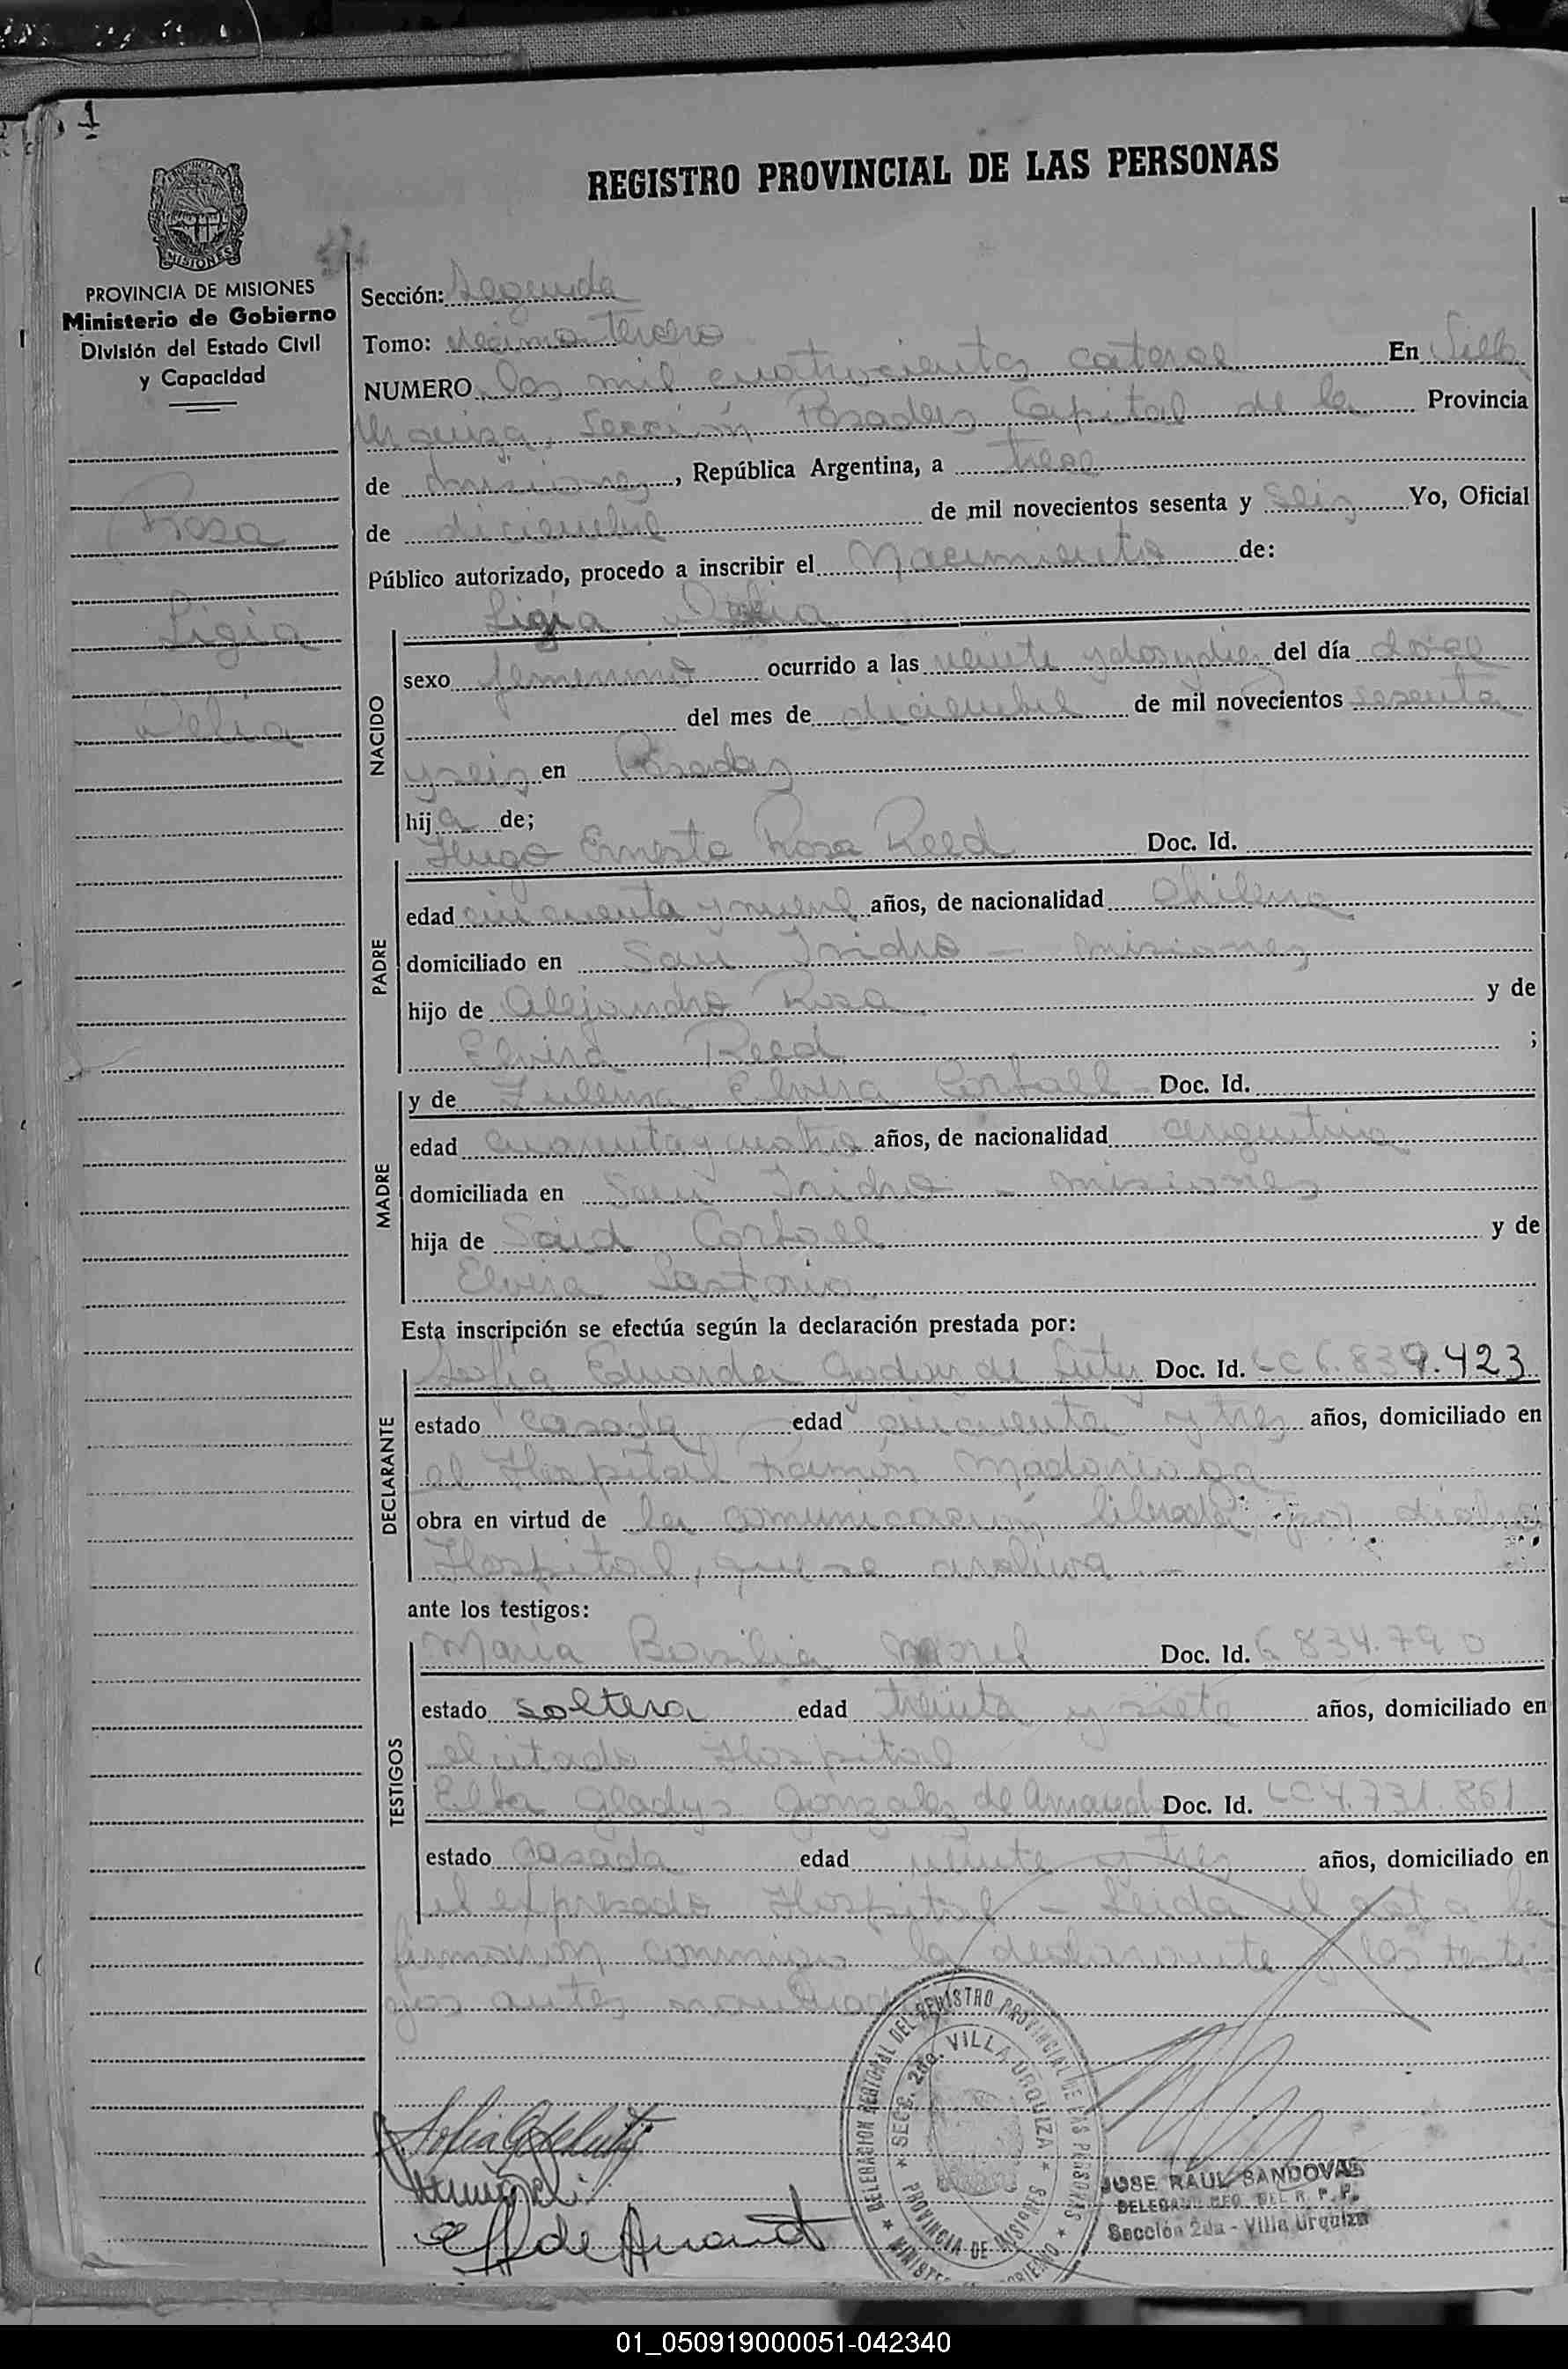 1
REGISTRO PROVINCIAL DE LAS PERSONAS
PROVINCIA DE MISIONES
Ministerio de Gobierno
División del Estado Civil
y Capacidad
Rosa
Ligia
Delia
Sección: Segunda
Tomo: décimo tercero
NUMERO dos mil cuatrocientos catorce En Villa
Urquiza, Sección Posadas Capital de la Provincia
de Misiones, República Argentina, a trece
de diciembre de mil novecientos sesenta y seis Yo, Oficial
Público autorizado, procedo a inscribir el Nacimiento de:
Ligia Delia
NACIDO
sexo femenino ocurrido a las veinte y dos y diez del día doce
del mes de diciembre de mil novecientos sesenta
y seis en Posadas
hija de;
Hugo Ernesto Rosa Reed Doc. Id.
PADRE
edad cincuenta y nueve años, de nacionalidad chilena
domiciliado en San Isidro - Misiones
hijo de Alejandro Rosa y de
Elvira Reed ;
y de Zulema Elvira Doc. Id.
MADRE
edad cuarenta y cuatro años, de nacionalidad argentina
domiciliada en San Isidro - Misiones
hija de Said y de
Elvira
Esta inscripción se efectúa según la declaración prestada por:
Sofia Eduarda Godoy de Doc. Id. LC 6.839.423
DECLARANTE
estado casada edad cincuenta y tres años, domiciliado en
el Hospital Ramón Madariaga
obra en virtud de la comunicación librada por dicho
Hospital, que se archiva.-
ante los testigos:
Maria Basilia Morel Doc. Id. 6.834.790
TESTIGOS
estado soltera edad treinta y siete años, domiciliado en
el citado Hospital
Elba Gladys Gonzalez de Doc. Id. LC 4.731.861
estado casada edad veinte y tres años, domiciliado en
el expresado Hospital - Leida el acta la
firmaron conmigo la declarante y los testi
gos antes nombrados
DELEGACION REGIONAL DEL REGISTRO PROVINCIAL DE LAS PERSONAS
SECC. 2da. VILLA URQUIZA
PROVINCIA DE MISIONES
JOSE RAUL SANDOVAS
DELEGADO REG. DEL R. P. P.
Sección 2da - Villa Urquiza
01_050919000051-042340